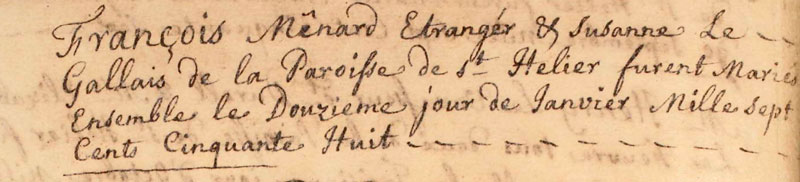 François Mênard Etrangér & Susanne Le - -
Gallais de la Paroisse de St. Helier furent Mariés
Ensemble le Douzieme jour de Janvier Mille sept
Cents Cinquante Huit - - - - - - - - -